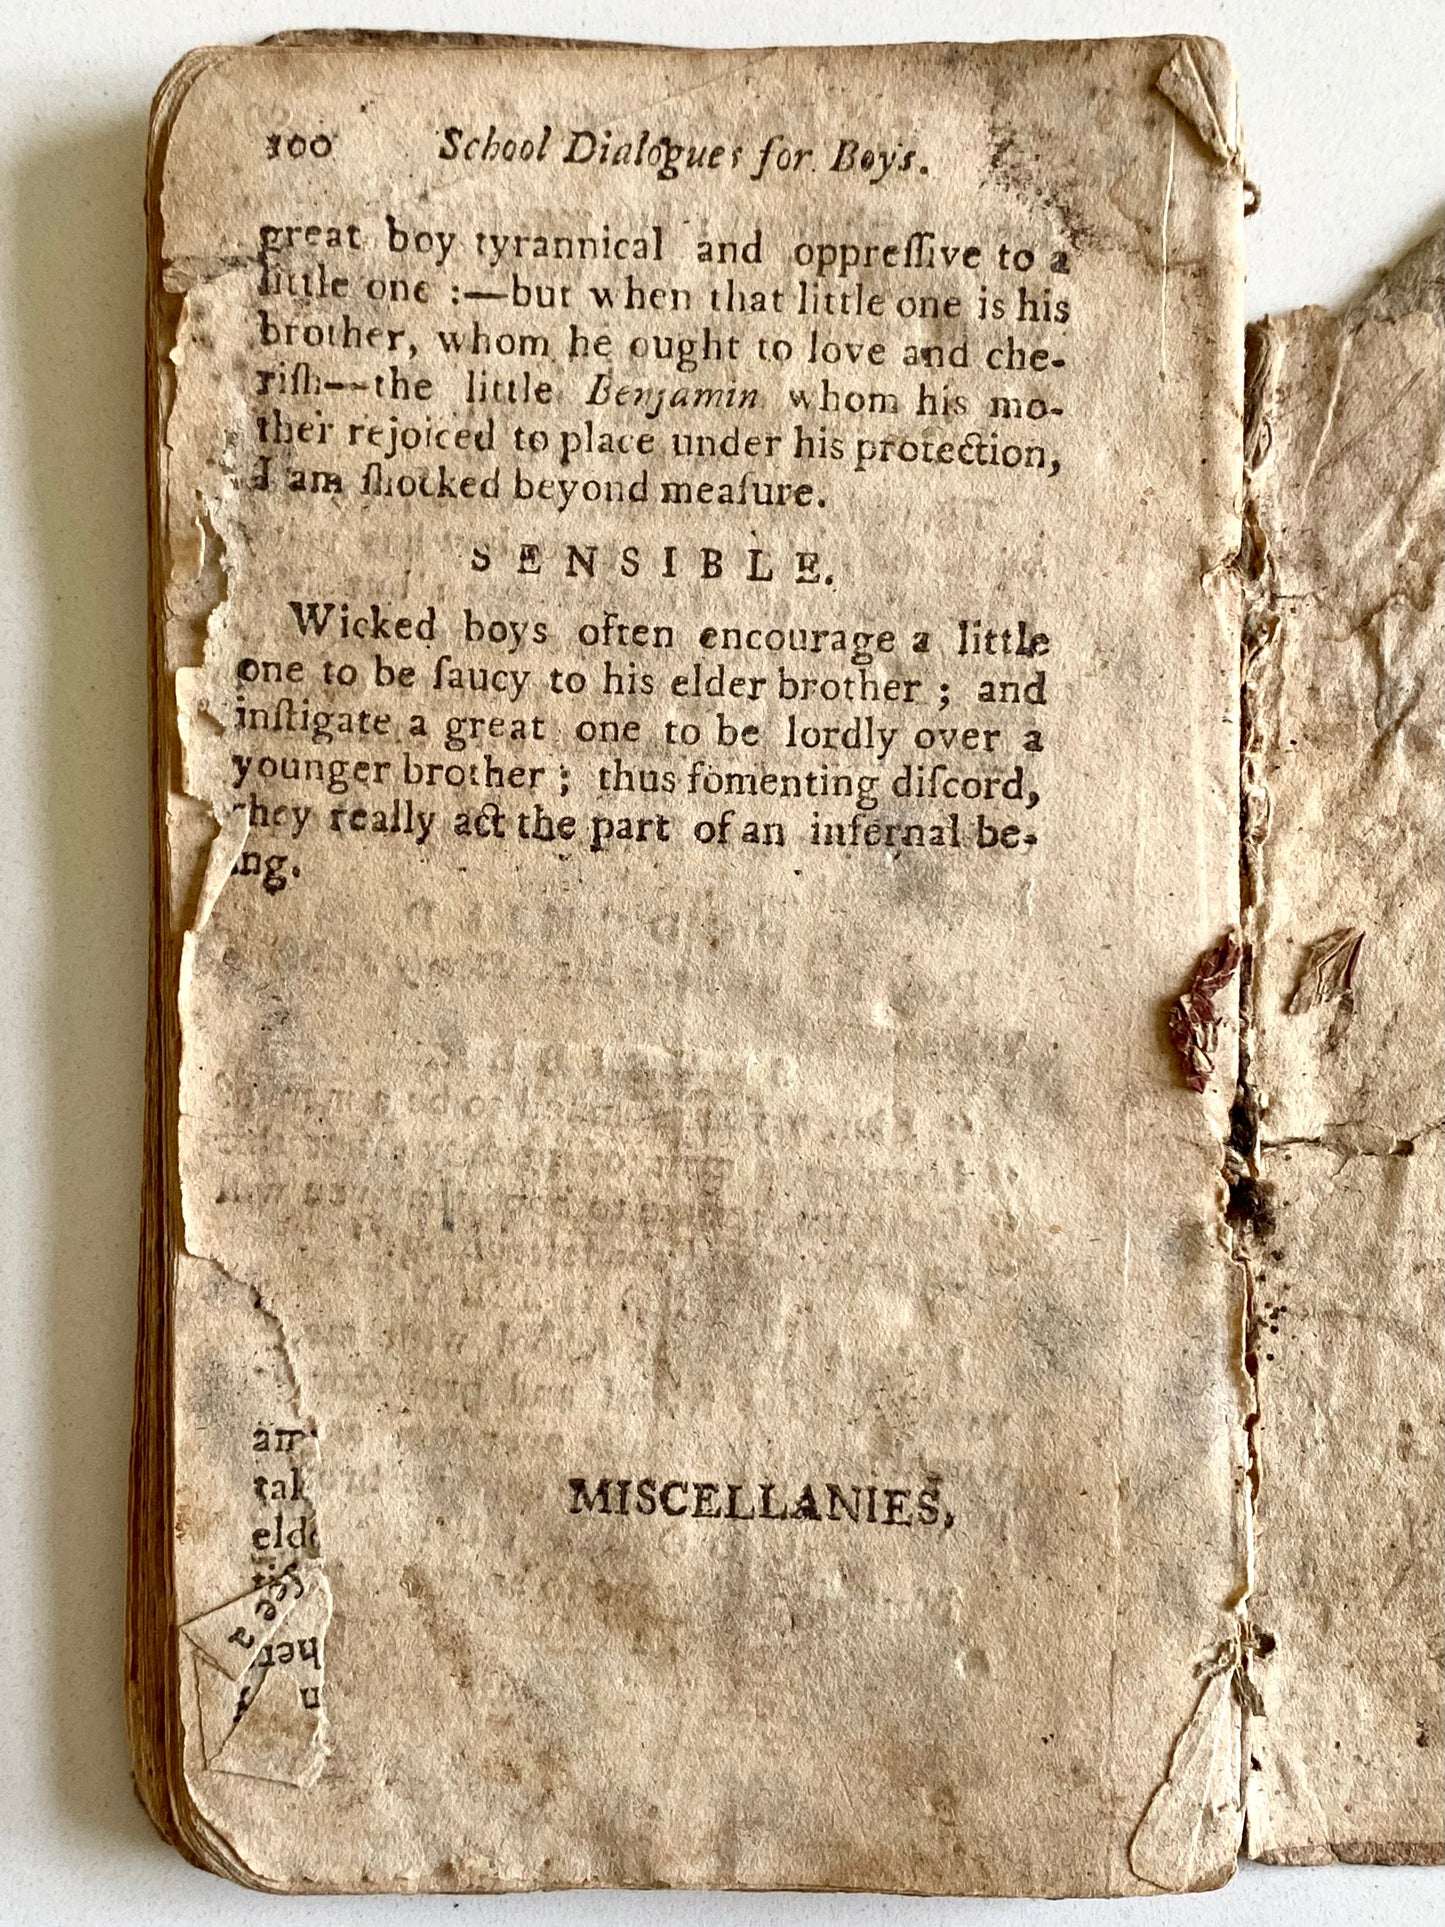 100 School Dialogues for Boys.
great boy tyrannical and oppreſſive to a
little one :—but when that little one is his
brother, whom he ought to love and che-
riſh--the little Benjamin whom his mo-
ther rejoiced to place under his protection,
I am ſhocked beyond meaſure.
SENSIBLE.
Wicked boys often encourage a little
one to be ſaucy to his elder brother ; and
inſtigate a great one to be lordly over a
younger brother ; thus fomenting diſcord,
they really act the part of an infernal be-
ing.
am
tak
elde
MISCELLANIES,
ee
a
her
n